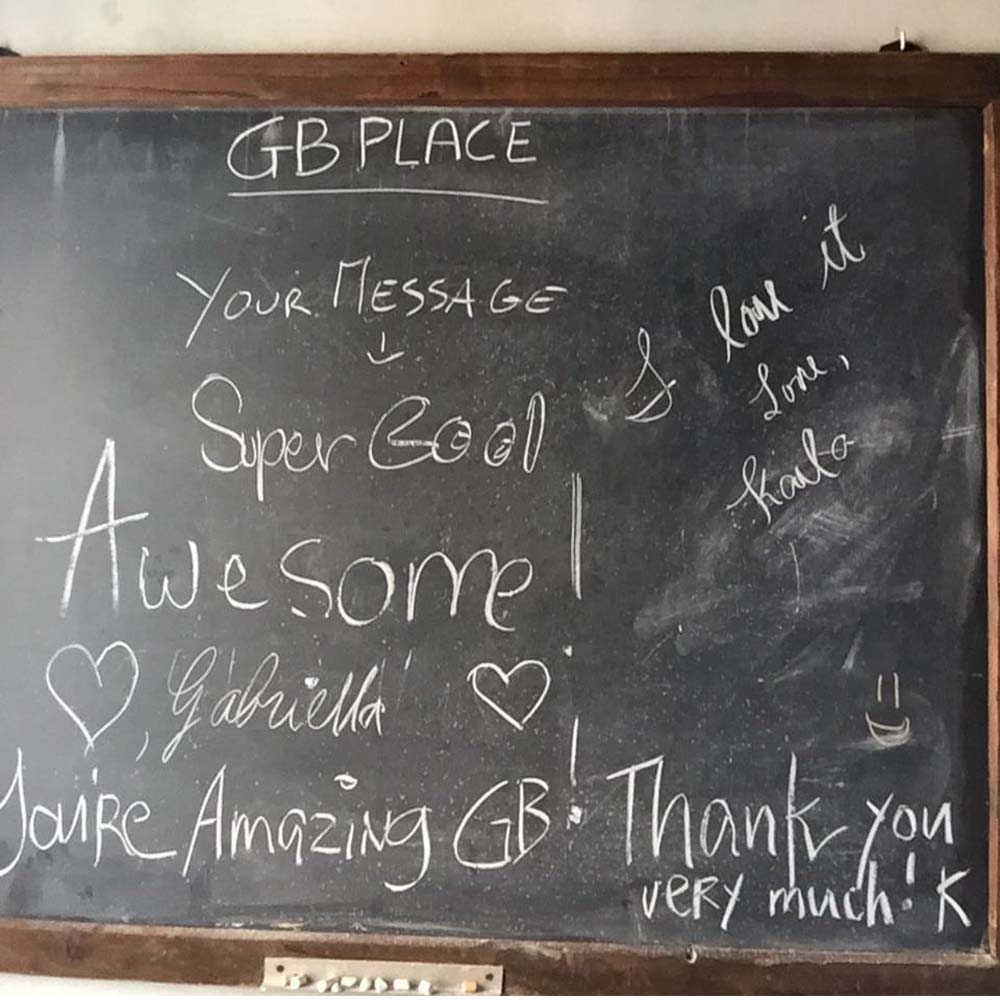 GB PLACE
YOUR MESSAGE
Super Cool
Awesome!
Gabriella
You're Amazing GB!
I love it
Love,
Karla
Thank you
very much! K